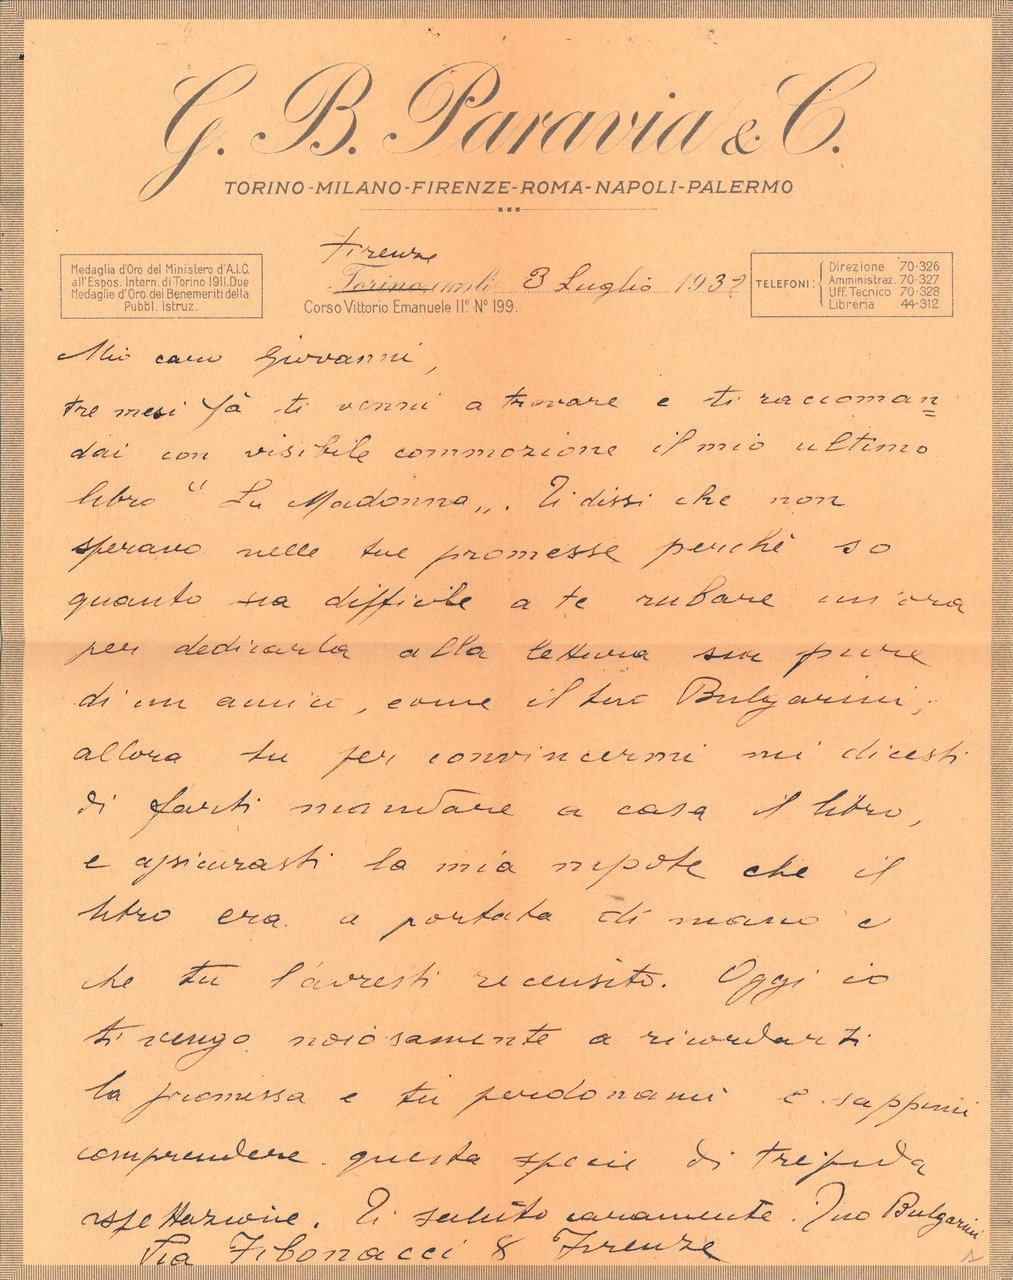 G. B. Paravia & C.
TORINO-MILANO-FIRENZE-ROMA-NAPOLI-PALERMO
Firenze
Torino, 3 Luglio 1937
Corso Vittorio Emanuele II° N° 199.
Medaglia d'Oro del Ministero d'A.I.C.
all'Espos. Intern. di Torino 1911. Due
Medaglie d'Oro dei Benemeriti della
Pubbl. Istruz.
TELEFONI:
Direzione 70-326
Amministraz. 70-327
Uff. Tecnico 70-328
Libreria 44-312
Mio caro Giovanni,
tre mesi fà ti venni a trovare e ti raccoman=
dai con visibile commozione il mio ultimo
libro "La Madonna„. Ti dissi che non
speravo nelle tue promesse perchè so
quanto sia difficile a te rubare un'ora
per dedicarla alla lettura sia pure
di un amico, come il tuo Bulgarini;
allora tu per convincermi mi dicesti
di farti mandare a casa il libro,
e assicurasti la mia nipote che il
libro era a portata di mano e
che tu l'avresti recensito. Oggi io
ti vengo noiosamente a ricordarti
la promessa e tu perdonami e sappimi
comprendere questa specie di trepida
aspettazione. Ti saluto caramente. Tuo Bulgarini
Via Fibonacci 8 Firenze